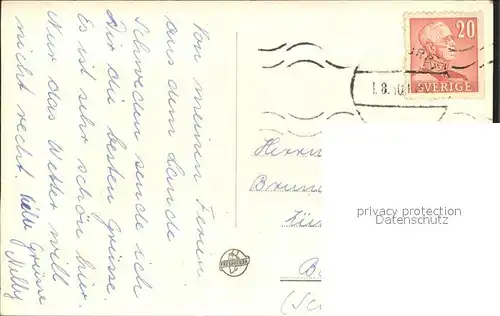 Von meinen Ferien
aus dem Lande
Schweden sende ich
Dir die besten Grüsse.
Es ist sehr schön hier.
Nur das Wetter will
nicht recht. Viele Grüsse
Nelly
20
SVERIGE
1.8.
Herrn
privacy protection
Datenschutz